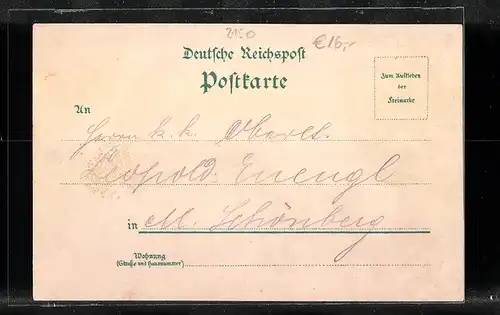 2150
€16,-
Deutsche Reichspost
Postkarte
Zum Aufkleben
der
Freimarke
An
Herrn k. k. Oberlt.
Leopold
in M. Schönberg
Wohnung
(Straße und Hausnummer)